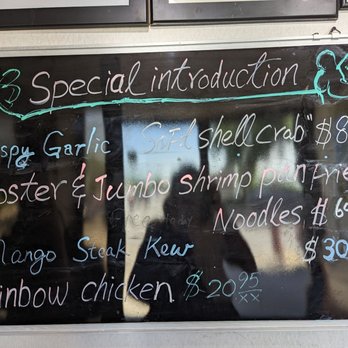 Special introduction
spy Garlic Soft shell crab" $8
bster & Jumbo shrimp pan Frie
Noodles $6
Mango Steak Kew $30
inbow chicken $20.95
xx